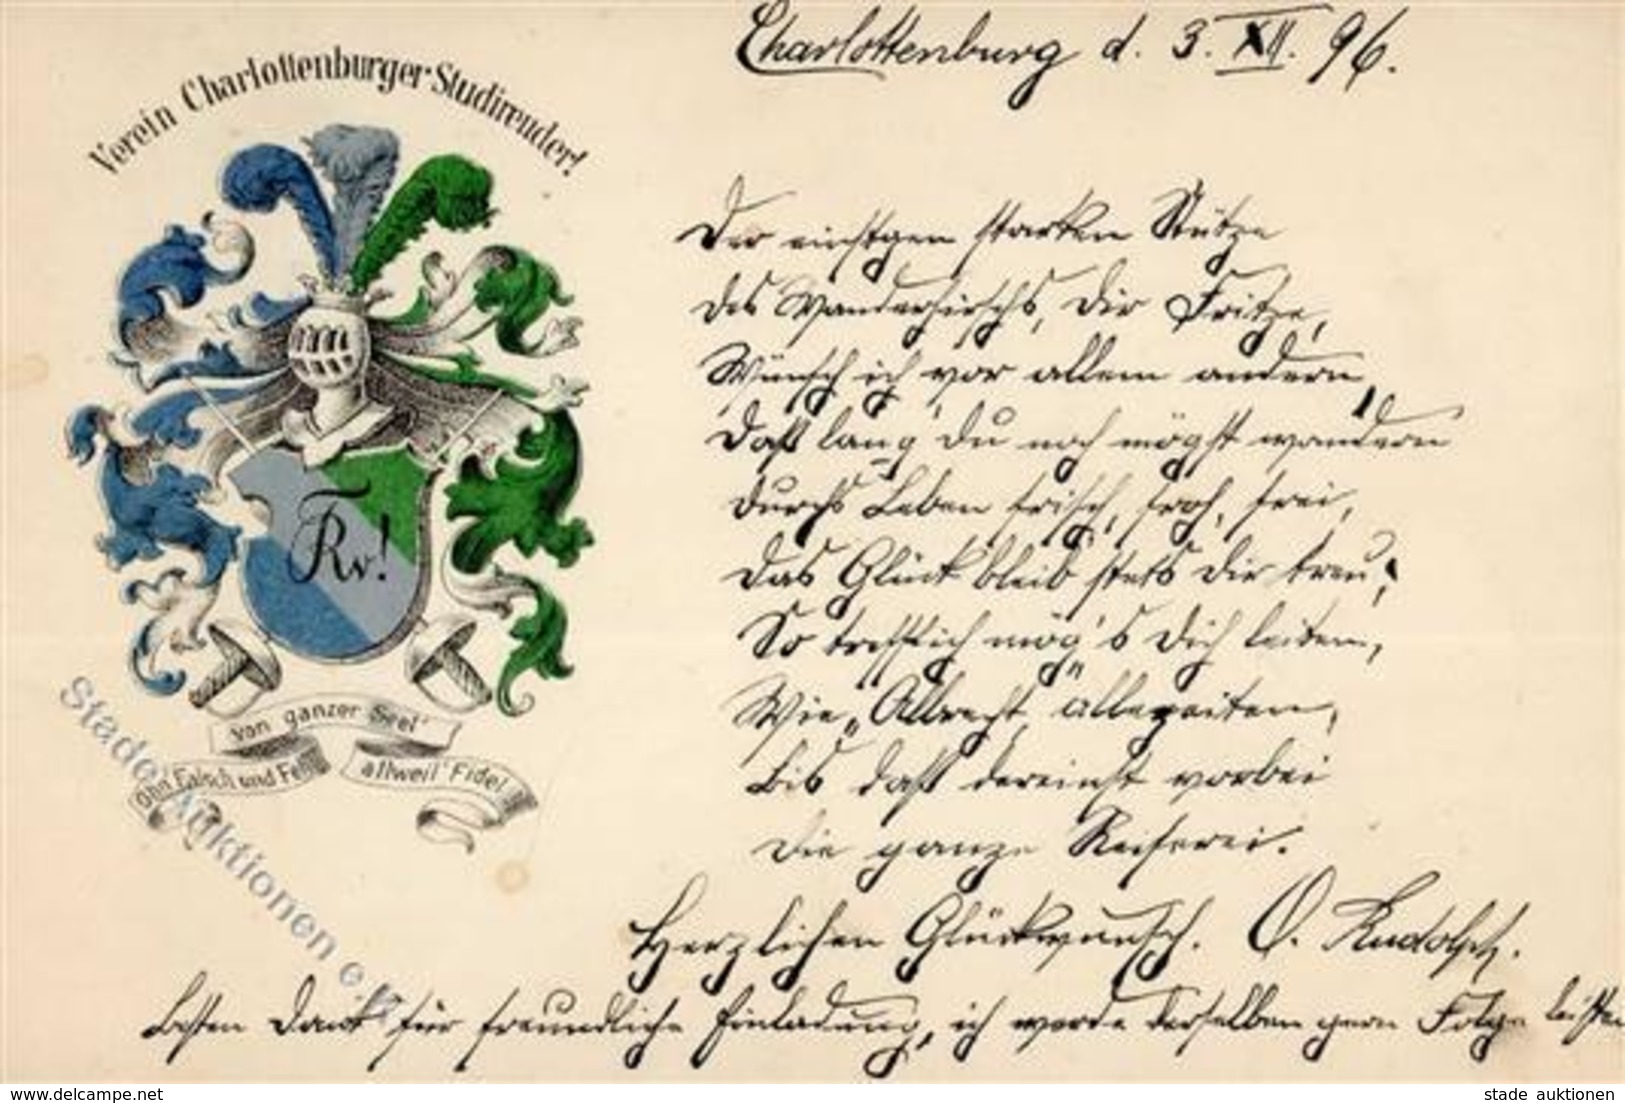 Charlottenburg d. 3. XII. 96.
Verein Charlottenburger Studirender!
Der einstgen starken Stütze
des Wanderhirschs, Dir Fritze,
Wünsch ich vor allem andern,
Daß lang Du noch mögst wandern
Durchs Leben frisch, froh, frei,
Das Glück bleib stets Dir treu;
So trefflich mög's Dich leiten,
Wie „Albrecht" allezeiten,
Bis daß dereinst vorbei
Die ganze Reiserei.
Rv!
Von ganzer Seel'
ohn' Falsch und Fehl
allweil' Fidel
Herzlichen Glückwunsch. O. Rudolph.
Besten Dank für freundliche Einladung, ich werde derselben gern Folge leisten
Stade Auktionen e.K.
www.delcampe.net
stade auktionen